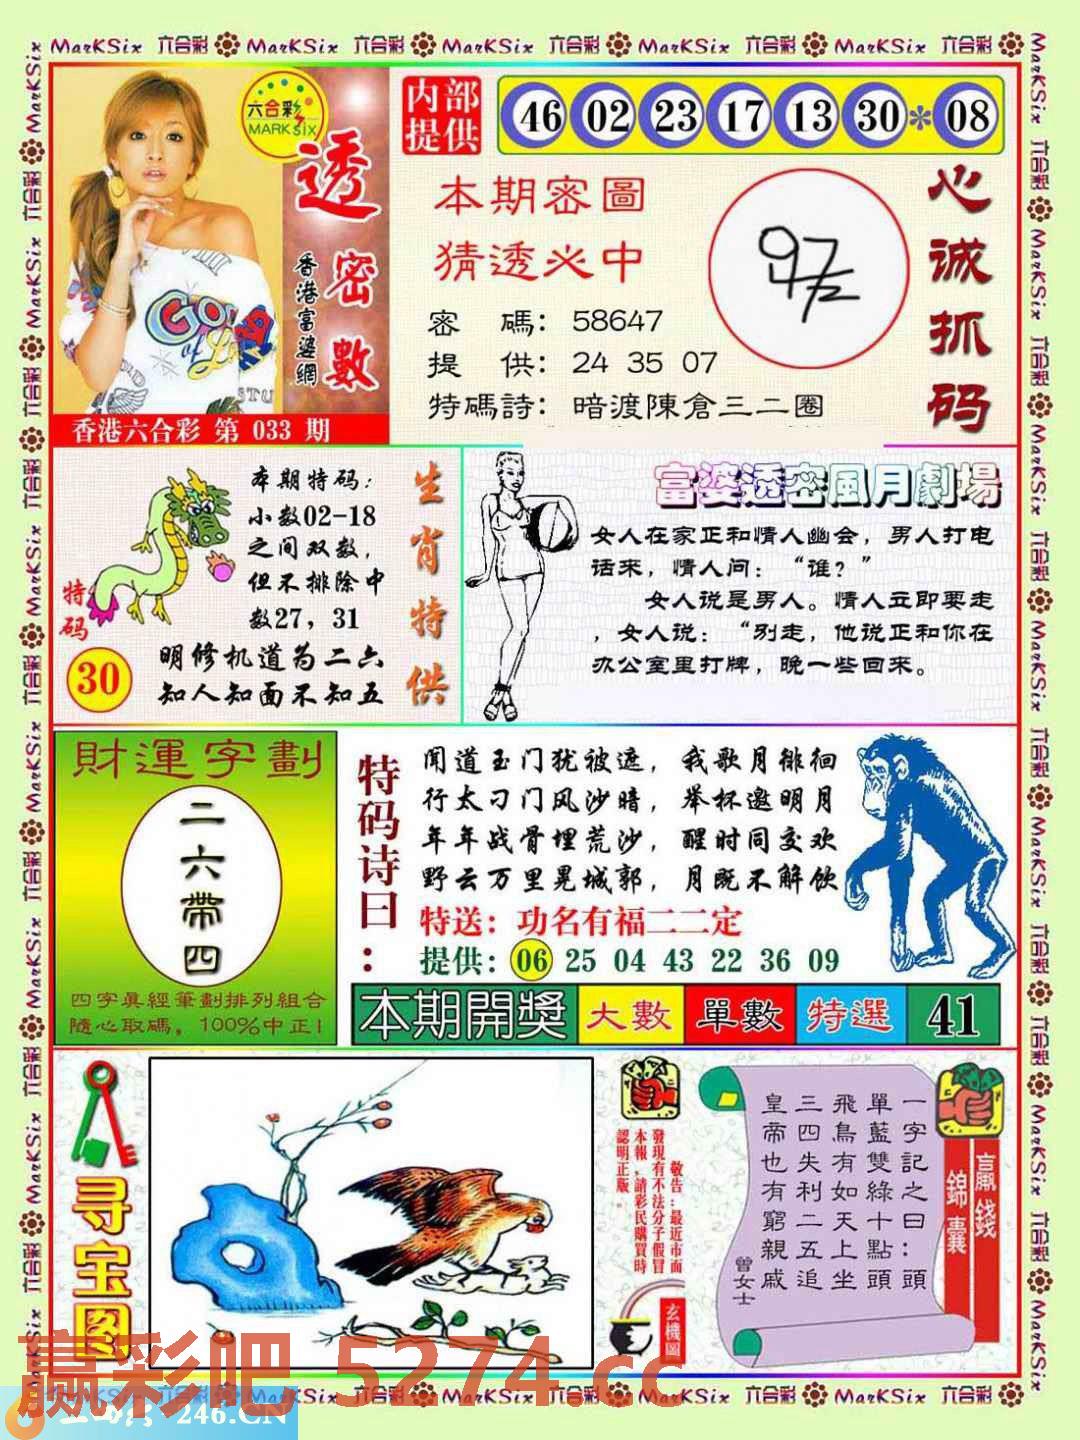 MarKSix 六合彩 MarKSix 六合彩 MarKSix 六合彩 MarKSix 六合彩 MarKSix 六合彩
六合彩
MARK SIX
透密數
香港富婆網
香港六合彩 第 033 期
内部
提供
46 02 23 17 13 30 * 08
本期密圖
猜透必中
密 碼: 58647
提 供: 24 35 07
特碼詩: 暗渡陳倉三二圈
心诚抓码
本期特码:
小数02-18
之间双数,
但不排除中
数27, 31
特码
30
明修机道为二六
知人知面不知五
生肖特供
富婆透密風月劇場
女人在家正和情人幽会, 男人打电
话来, 情人问: “谁? ”
女人说是男人。情人立即要走
, 女人说: “别走, 他说正和你在
办公室里打牌, 晚一些回来。
財運字劃
二六帶四
四字真經筆劃排列組合
隨心取碼, 100%中正!
特码诗曰:
闻道玉门犹被遮, 我歌月徘徊
行太刁门风沙暗, 举杯邀明月
年年战骨埋荒沙, 醒时同交欢
野云万里晃城郭, 月既不解饮
特送: 功名有福二二定
提供: 06 25 04 43 22 36 09
本期開獎 大數 單數 特選 41
寻宝图
敬告:最近市面
發現有不法分子假冒
本報,請彩民購買時
認明正版。
玄機圖
一字記之曰:頭
單藍雙綠十點頭
飛鳥有如天上坐
三四失利二五追
皇帝也有窮親戚
曾女士
贏錢
錦囊
赢彩吧 5274.cc
246.CN
MarKSix 六合彩 MarKSix 六合彩 MarKSix 六合彩 MarKSix 六合彩